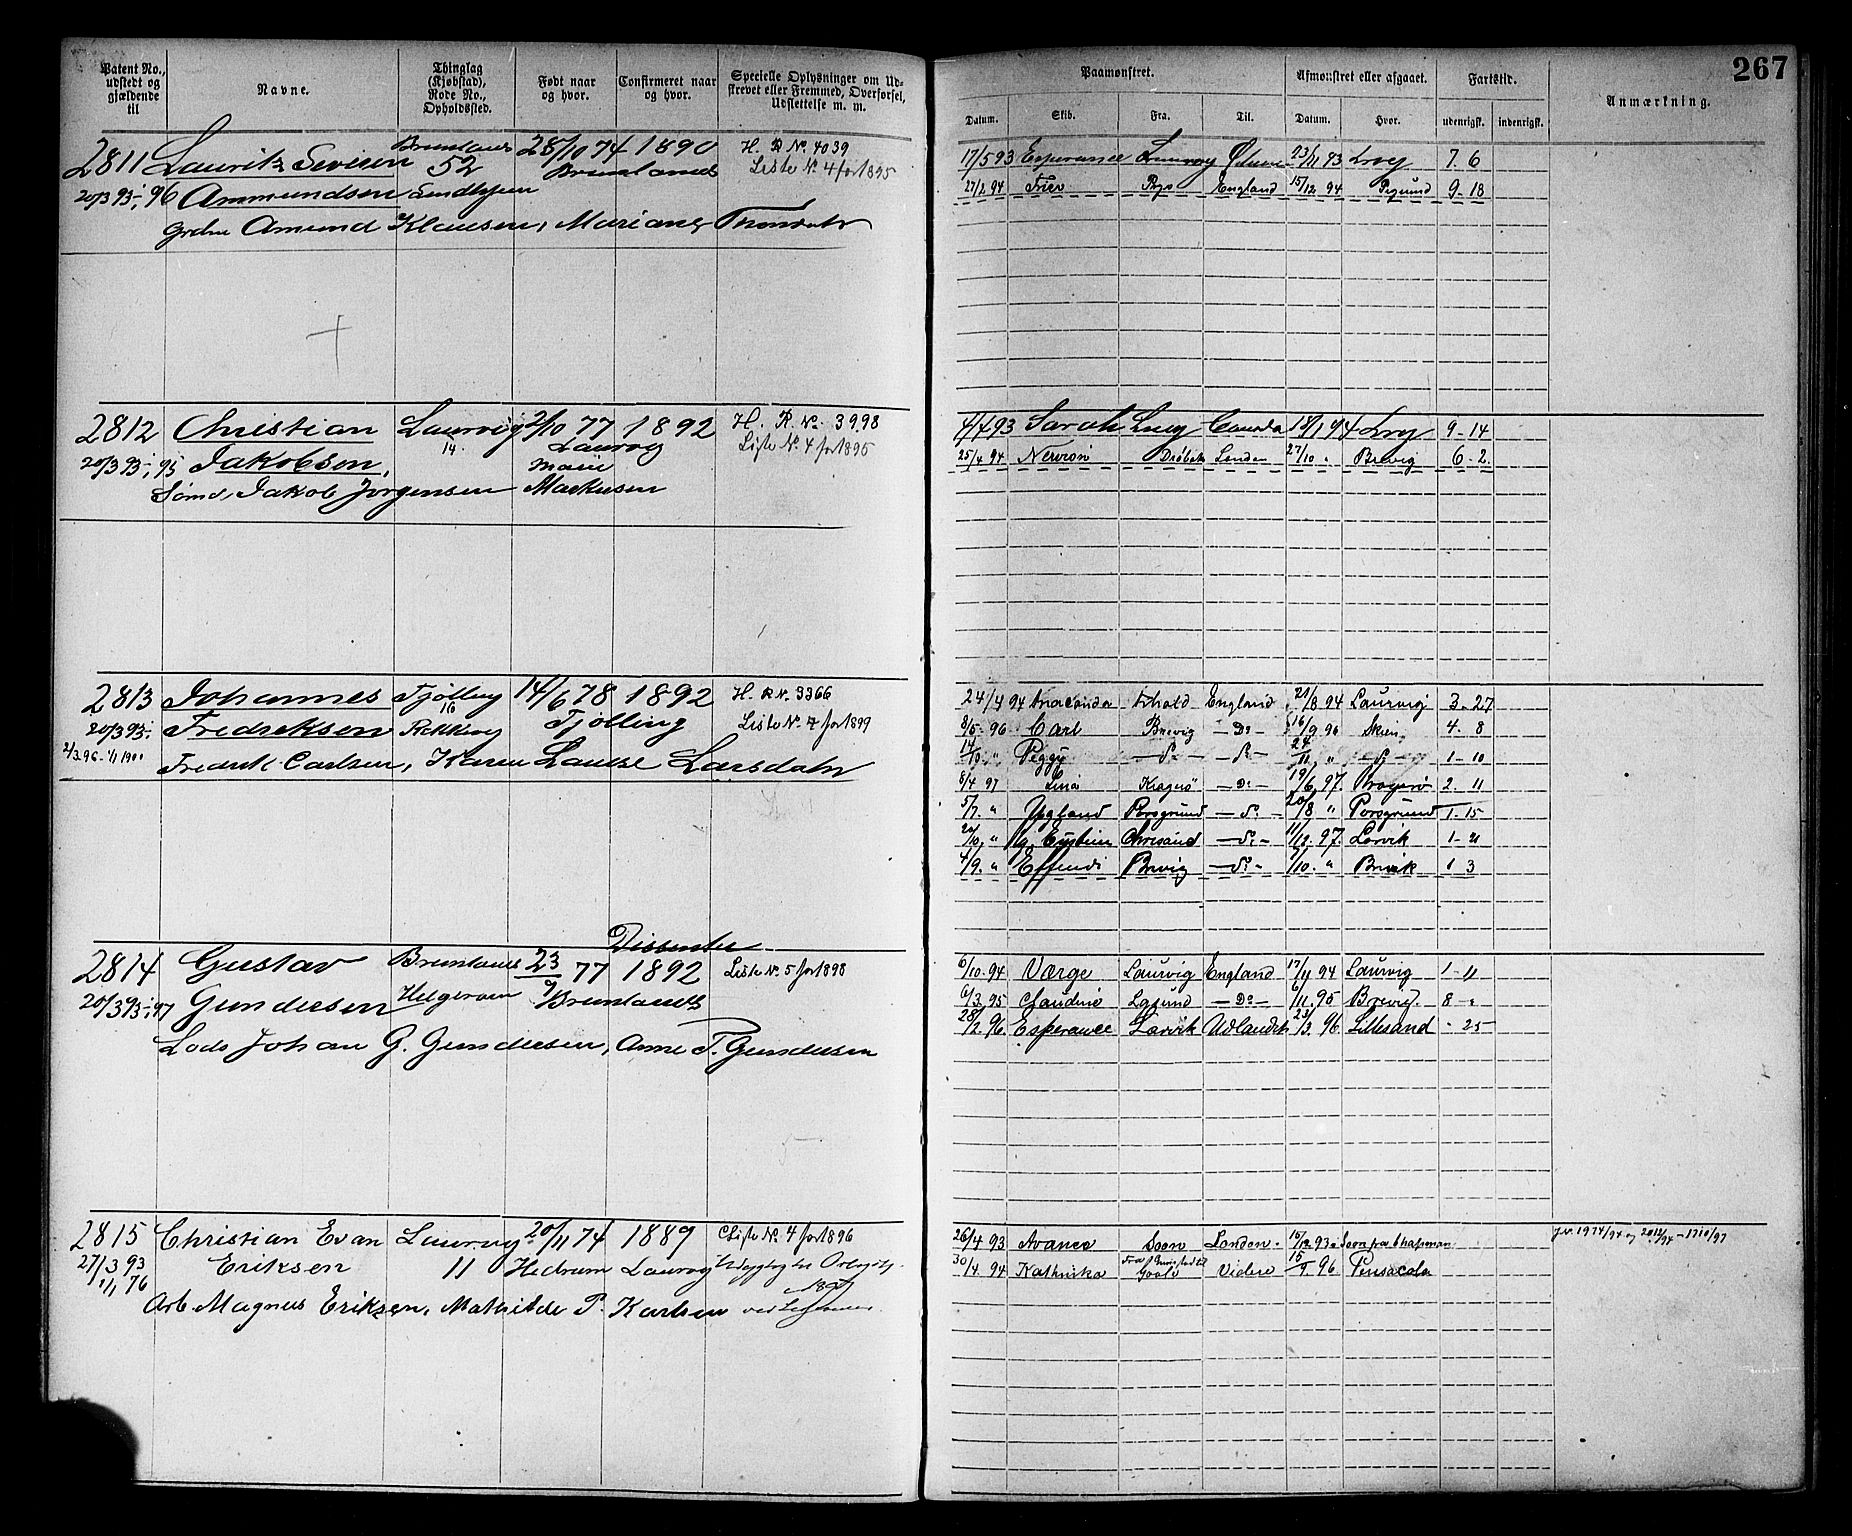 267
Patent No., udstedt og gjældende til
Navne.
Thinglag (Kjøbstad), Rode No., Opholdssted.
Født naar og hvor.
Confirmeret naar og hvor.
Specielle Oplysninger om Udskrevet eller Fremmed, Overførsel, Udslettelse m. m.
Paamønstret.
Afmønstret eller afgaaet.
Fartstid.
Anmærkning.
Datum. Skib. Fra. Til. Datum. Hvor. udenrigsk. indenrigsk.
2811 Lauritz Severin Brunlanes 28/10 74 1890 H. R No. 4039
52 Brunlanes Liste No. 4 for 1895
20/3 93 -; 96 Ammundsen
Amund Klausen,
17/5 93 Esperance 23/11 93 Lrvg 7. 6
27/2 94 England 15/12 94 9-18
2812 Christian Laurvig 2/10 77 1892 H. R. No. 3998
14. Laurvig Liste No. 4 for 1895
20/3 93 -; 95 Jakobsen,
Sømd, Jakob Jørgensen Markusen
4/4 93 Sarah Lrvg Canada 18/1 94 Lrvg 9-14
25/4 94 Nervion Drøbak London 27/10 " Brevig 6-2
2813 Johannes Tjølling 14/6 78 1892 H. R No. 3366
16 Tjølling Liste No. 4 for 1899
20/3 93 -; Fredreksen Rekkevig
2/3 96 - 1/1 1900
Fredrik Carlsen, Karen Lauese Larsdatr
24/4 94 Anaconda England 21/8 94 Laurvig 3-27
8/5 - 96 Carl Brevig - Do - 16/9 96 Skien 4-8
Peggy 1-10
8/4 97 Lina Kragerø - Do - 19/6 97. Kragerø 2-11
5/7 " Ygland Porsgrund - Do - 20/8 " Porsgrund 1-15
20/10 " Chrisand - Do - 11/12 97. Larvik 1-21
4/9 " Effendi Brevig - Do - 7/10 " Brevik 1 3
Dissenter
2814 Gustav Brunlanes 23/9 77 1892 Liste No. 5 for 1898
20/3 93 -; 97 Gundersen Helgeroen Brunlanes
Lods Johan G. Gundersen, Anne T. Gundersen
6/10 - 94 Værge Laurvig England 17/11 94 Laurvig 1-11
6/3 95 Claudine Lgsund - Do - 6/11 95 Brevig 8-"
28/2 96 Esperance Larvik Udlandet 23/3 96 Lillesand "-25
2815 Christian Evan Laurvig 20/11 74 1889 Liste No. 4 for 1896
27/3 93 Eriksen 11 Hedrum Laurvig
1/1, 76
Arb. Magnus Eriksen, Mathilde P. Karlsen
26/4 93 Avance Soon London 15/12 93
30/4 94 Kathinka Goole Videre 15/5. 96 Pensacola